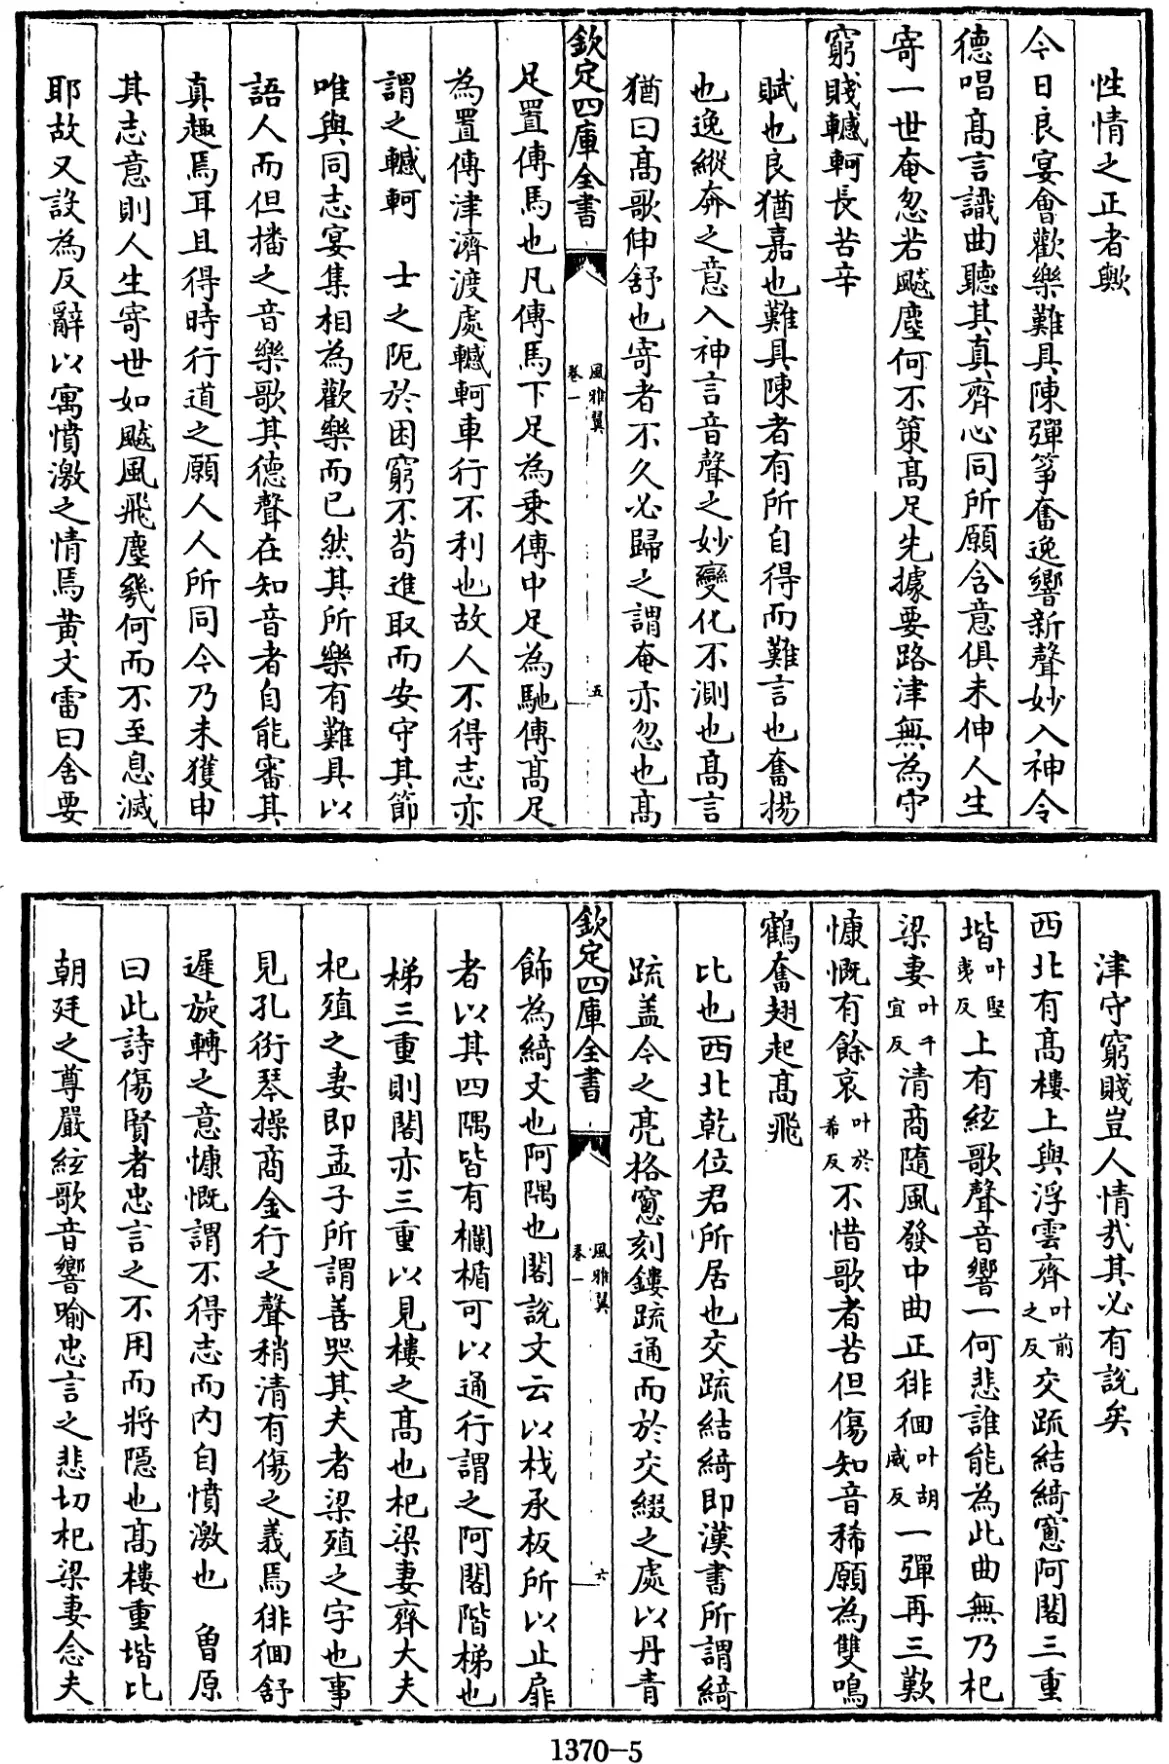 性情之正者歟
今日良宴會歡樂難具陳彈箏奮逸響新聲妙入神令
德唱髙言識曲聽其真齊心同所願含意俱未伸人生
寄一世奄忽若飈塵何不策髙足先據要路津無為守
窮賤轗軻長苦辛
賦也良猶嘉也難具陳者有所自得而難言也奮揚
也逸縱奔之意入神言音聲之妙變化不測也髙言
猶曰髙歌伸舒也寄者不久必歸之謂奄亦忽也髙
欽定四庫全書
風雅翼
卷一
五
足置傳馬也凡傳馬下足為乗傳中足為馳傳髙足
為置傳津濟渡處轗軻車行不利也故人不得志亦
謂之轗軻 士之阨於困窮不苟進取而安守其節
唯與同志宴集相為歡樂而已然其所樂有難具以
語人而但播之音樂歌其徳聲在知音者自能審其
真趣焉耳且得時行道之願人人所同今乃未獲申
其志意則人生寄世如飈風飛塵幾何而不至息滅
耶故又設為反辭以寓憤激之情焉黄文雷曰舍要
津守窮賤豈人情哉其必有說矣
西北有髙樓上與浮雲齊叶前之反交疏結綺窻阿閣三重
堦叶堅夷反上有絃歌聲音響一何悲誰能為此曲無乃杞
梁妻叶千宜反清商隨風發中曲正徘徊叶胡威反一彈再三歎
慷慨有餘哀叶於希反不惜歌者苦但傷知音稀願為雙鳴
鶴奮翅起髙飛
比也西北乾位君所居也交疏結綺即漢書所謂綺
疏盖今之亮格窻刻鏤疏通而於交綴之處以丹青
欽定四庫全書
風雅翼
卷一
六
飾為綺文也阿隅也閣說文云以栈承板所以止扉
者以其四隅皆有欄楯可以通行謂之阿閣階梯也
梯三重則閣亦三重以見樓之髙也杞梁妻齊大夫
杞殖之妻即孟子所謂善哭其夫者梁殖之字也事
見孔衍琴操商金行之聲稍清有傷之義焉徘徊舒
遲旋轉之意慷慨謂不得志而内自憤激也 曾原
曰此詩傷賢者忠言之不用而將隠也髙樓重堦比
朝廷之尊嚴絃歌音響喻忠言之悲切杞梁妻念夫
1370-5